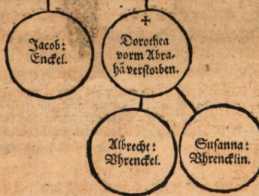 Jacob:
Enckel.
✝
Dorothea
vorm Abra-
hā verstorben.
Albrecht:
Vhrenckel.
Susanna:
Vhrencklin.